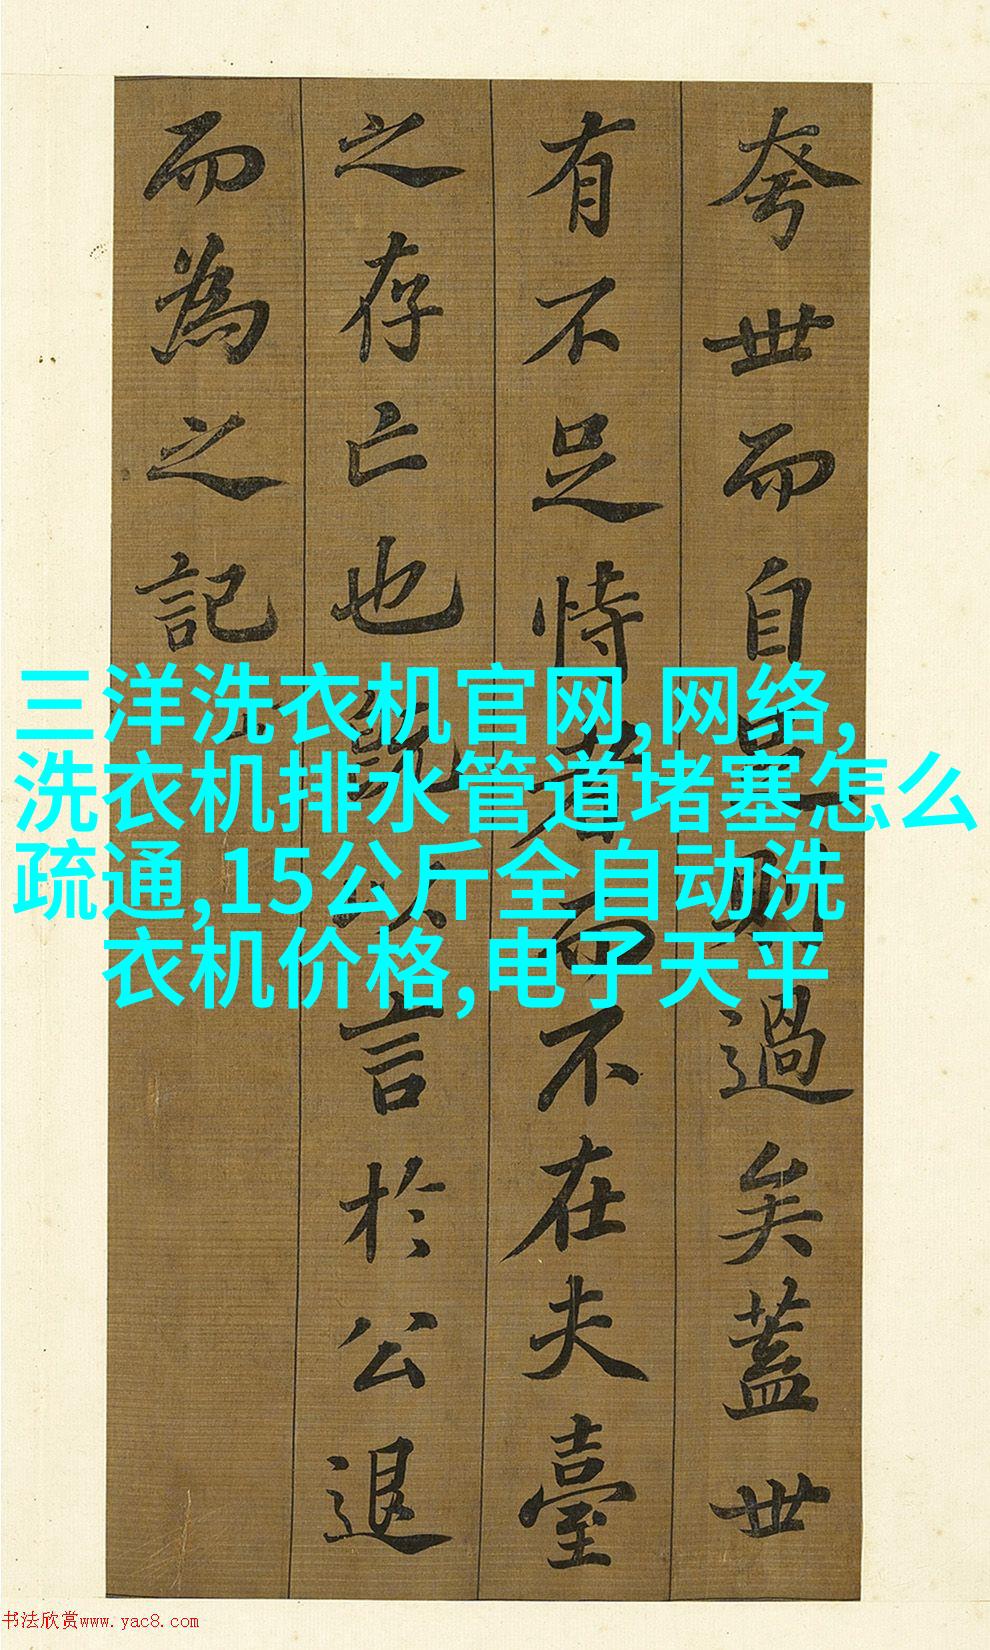 夸世而自足則過矣蓋世
有不足恃者而不在夫臺
之存亡也既以言於公退
而為之記
三洋洗衣机官网,网络,
洗衣机排水管道堵塞怎么
疏通,15公斤全自动洗
衣机价格,电子天平
书法欣赏www.yac8.com